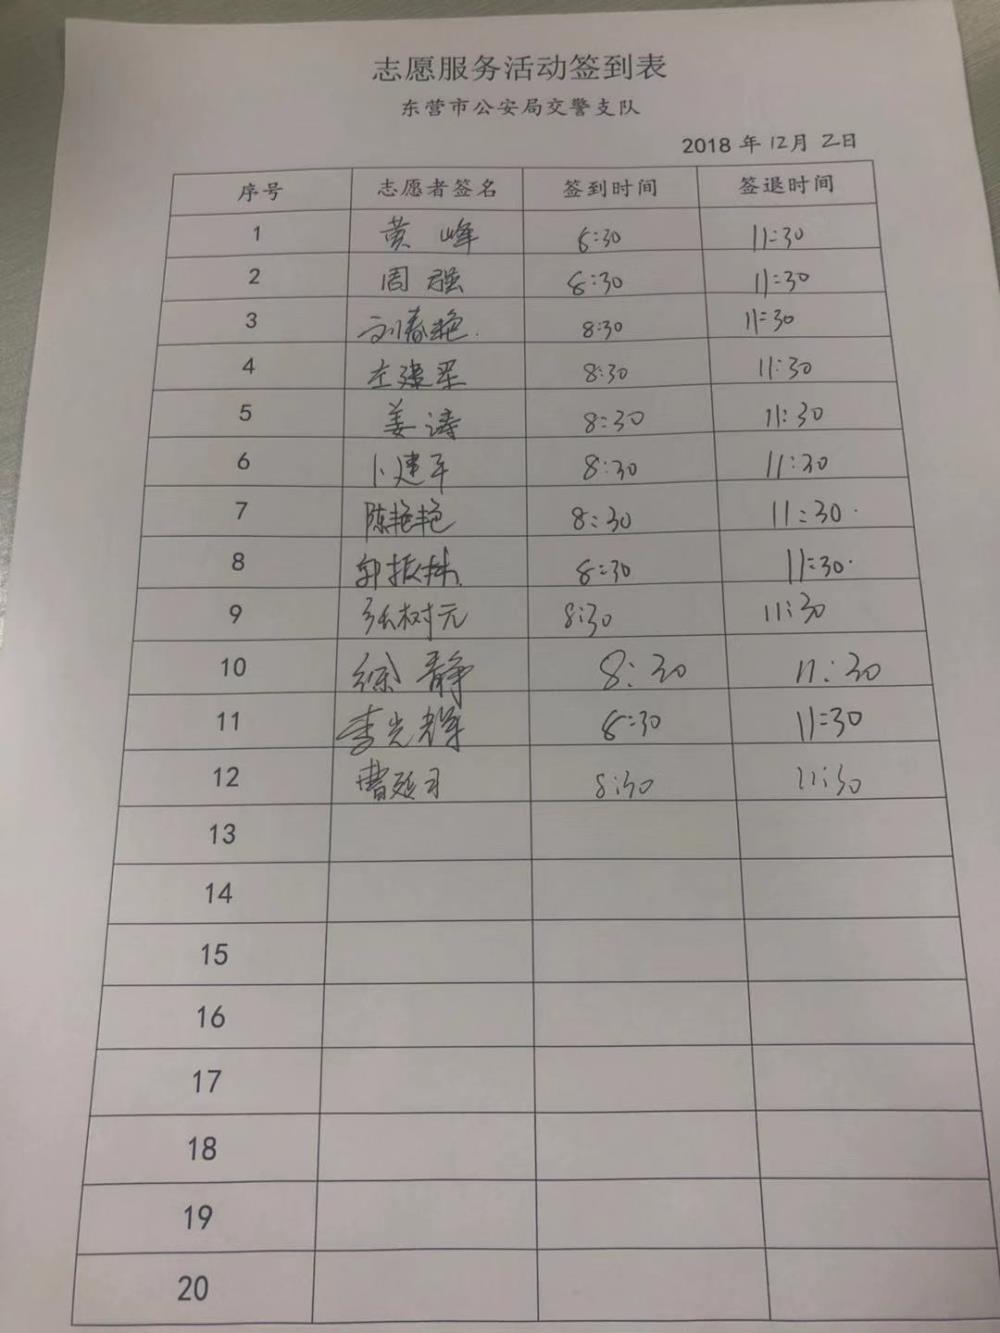 志愿服务活动签到表
东营市公安局交警支队
2018 年 12月 2日
序号 志愿者签名 签到时间 签退时间
1 黄峰 8:30 11:30
2 周强 8:30 11:30
3 刘春艳 8:30 11:30
4 左建军 8:30 11:30
5 姜涛 8:30 11:30
6 卜建军 8:30 11:30
7 陈艳艳 8:30 11:30
8 8:30 11:30
9 张树元 8:30 11:30
10 徐静 8:30 11:30
11 李光辉 8:30 11:30
12 8:30 11:30
13
14
15
16
17
18
19
20